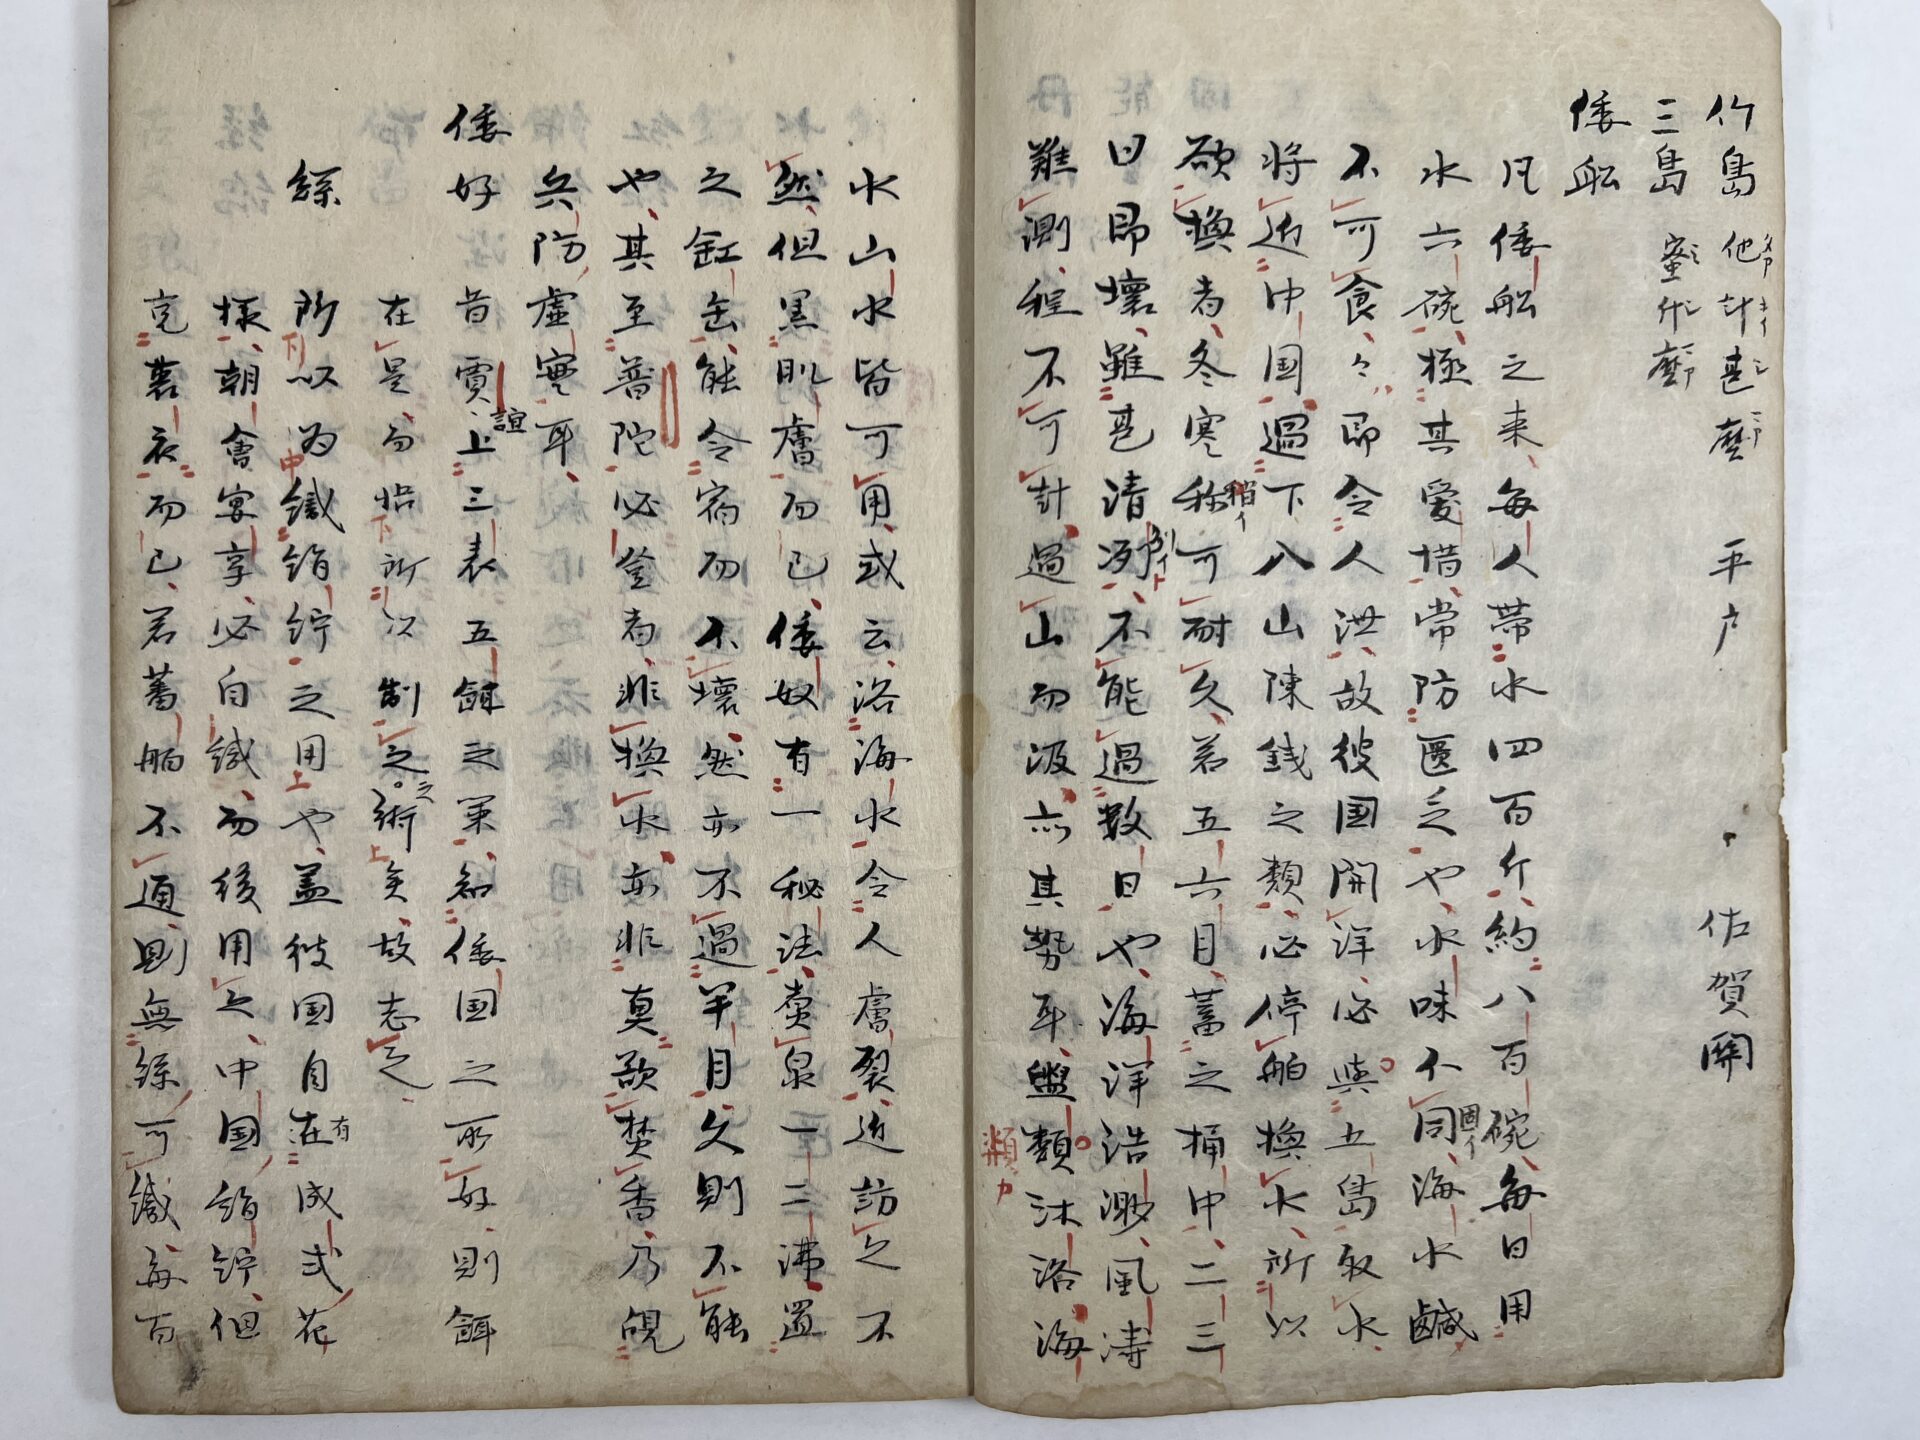 竹島 他計甚麼 平户 佐賀関
三島 蜜什麼
倭舩
凡倭舩之来、每人帯水四百斤、約八百碗、每日用
水六碗、極其愛惜、常防匱乏也、水味不同、海水鹹
不可食、々即令人洪、故彼国開洋、必與五島取水
将近中国過下八山陳錢之類、必停舶換水、所以
欲換者、冬寒稍可耐久、若五六月、蓄之桶中、二三
日即壞、雖甚清冽、不能過數日也、海洋浩渺、風濤
難測、程不可計、過山而汲、亦其勢耳、盥類沐浴海
水山水皆可用、或云、浴海水令人膚裂、近訪之不
然、但黒肌膚而已、倭奴有一秘法、煑泉一二沸置
之缸缶、能令宿而不壞、然亦不過半月、久則不能
也、其至普陀必登者、非換水、亦非真欲焚香、乃覘
兵防虚寔耳、
倭好 昔賈誼上三表五餌之策、知倭国之所好、則餌
在是、而怡所以制之之術矣、故志之、
絲 所以為織絹紵之用也、盖彼国自在成式花
様、朝會宴享、必自織、而後用之、中国絹紵、但
克裏衣而已、若蕃舶不通、則無絲可織、每百